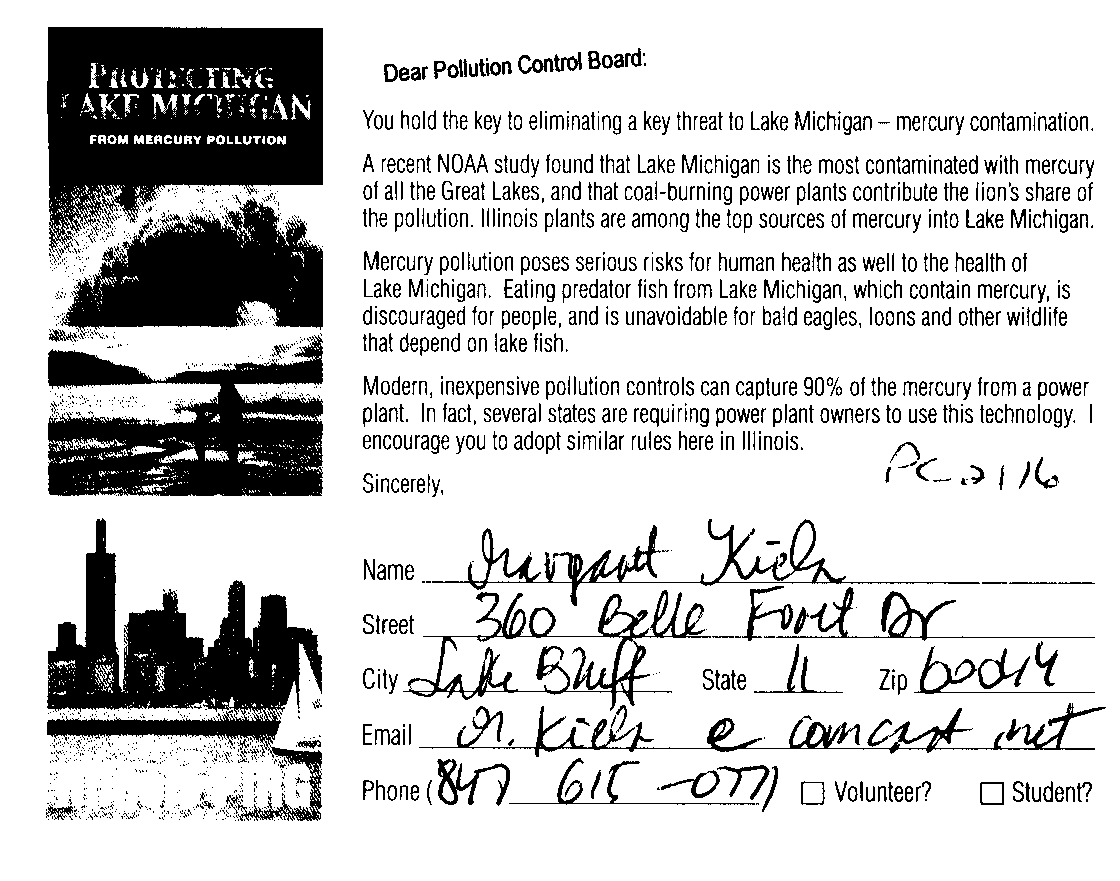 PROTECTING
LAKE MICHIGAN
FROM MERCURY POLLUTION
Dear Pollution Control Board:
You hold the key to eliminating a key threat to Lake Michigan – mercury contamination.
A recent NOAA study found that Lake Michigan is the most contaminated with mercury
of all the Great Lakes, and that coal-burning power plants contribute the lion's share of
the pollution. Illinois plants are among the top sources of mercury into Lake Michigan.
Mercury pollution poses serious risks for human health as well to the health of
Lake Michigan. Eating predator fish from Lake Michigan, which contain mercury, is
discouraged for people, and is unavoidable for bald eagles, loons and other wildlife
that depend on lake fish.
Modern, inexpensive pollution controls can capture 90% of the mercury from a power
plant. In fact, several states are requiring power plant owners to use this technology. I
encourage you to adopt similar rules here in Illinois.
PC 2116
Sincerely,
Name Margaret
Street 360 Belle Foret Dr
City Lake Bluff State Il Zip
Email comcast net
Phone (847 615 -0771
Volunteer? Student?